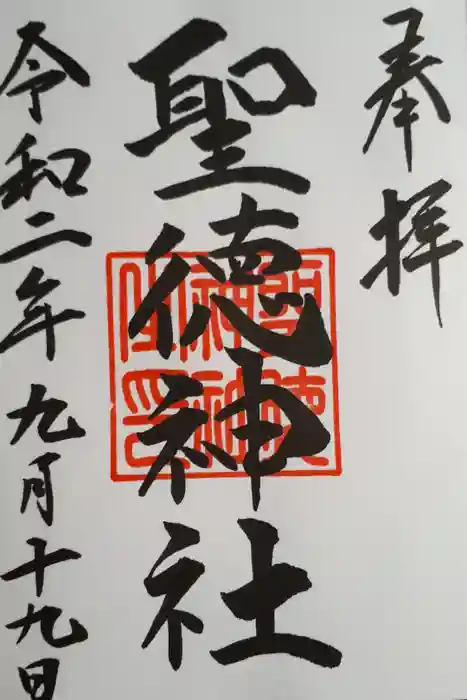 奉拝
聖徳神社
令和二年九月十九日